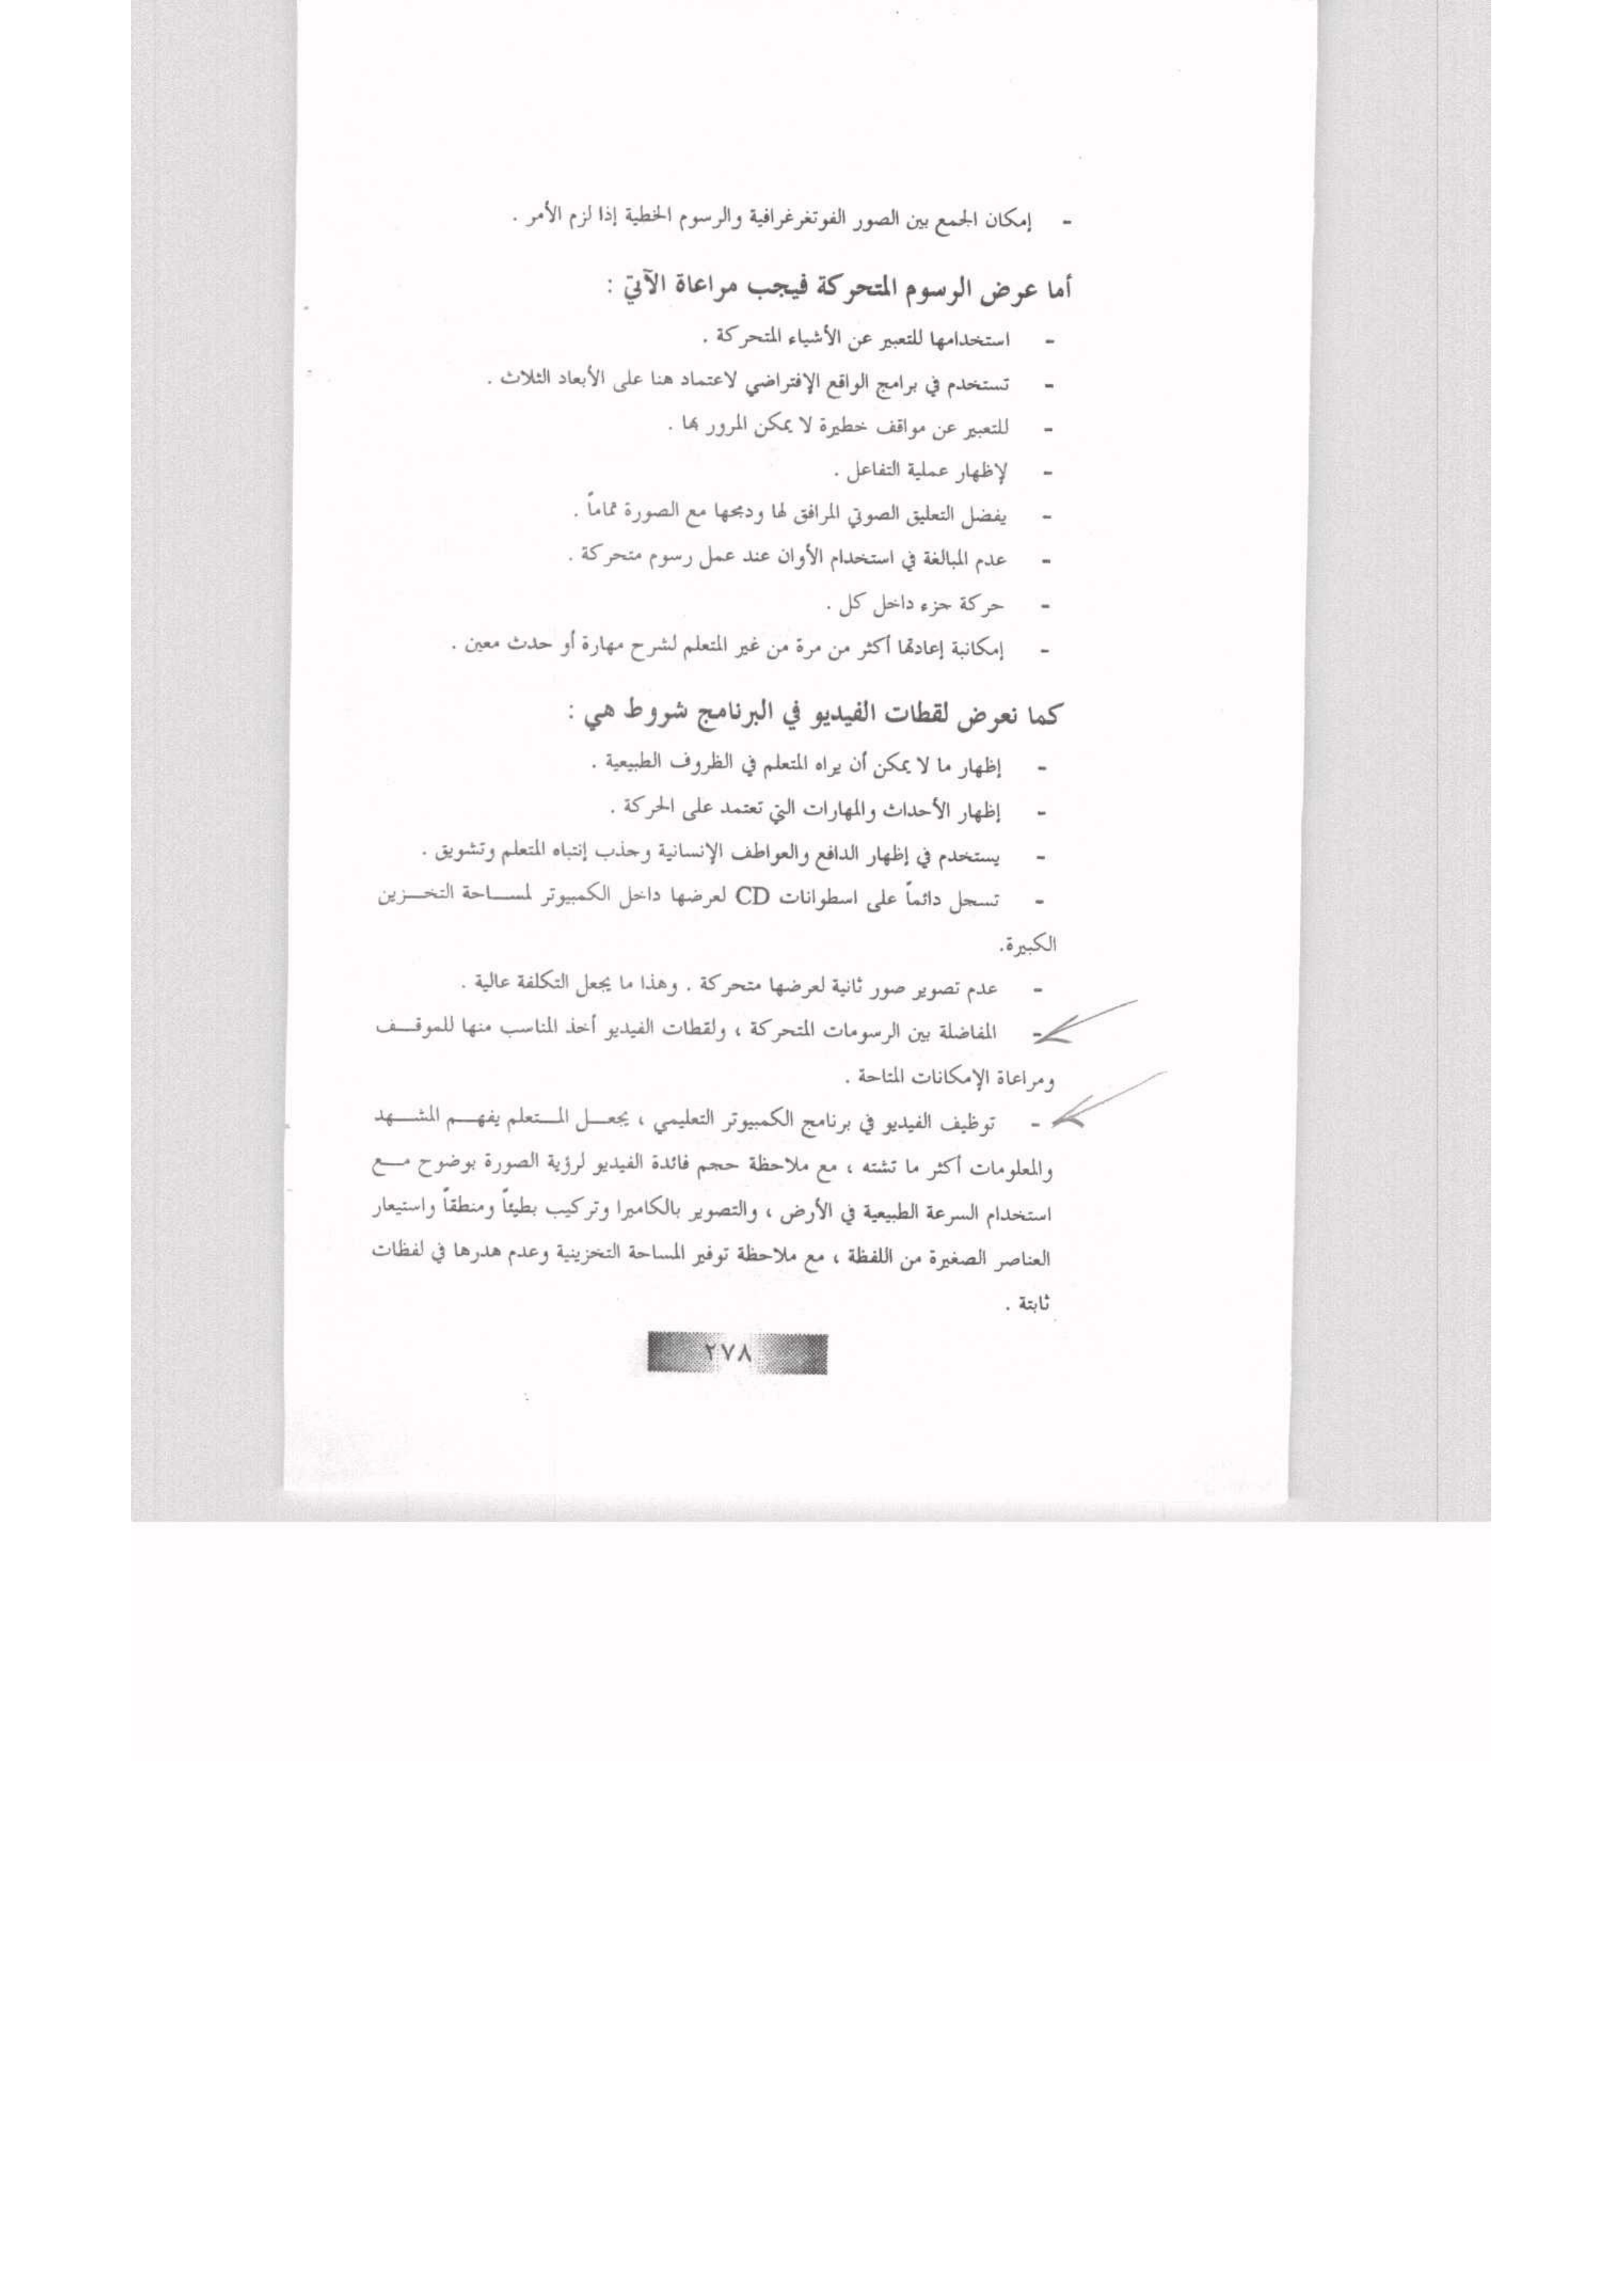 - إمكان الجمع بين الصور الفوتغرغرافية والرسوم الخطية إذا لزم الأمر .
أما عرض الرسوم المتحركة فيجب مراعاة الآتي :
- استخدامها للتعبير عن الأشياء المتحركة .
- تستخدم في برامج الواقع الإفتراضي لاعتماد هنا على الأبعاد الثلاث .
- للتعبير عن مواقف خطيرة لا يمكن المرور بها .
- لإظهار عملية التفاعل .
- يفضل التعليق الصوتي المرافق لها ودمجها مع الصورة تماماً .
- عدم المبالغة في استخدام الأوان عند عمل رسوم متحركة .
- حركة جزء داخل كل .
- إمكانبة إعادتها أكثر من مرة من غير المتعلم لشرح مهارة أو حدث معين .
كما نعرض لقطات الفيديو في البرنامج شروط هي :
- إظهار ما لا يمكن أن يراه المتعلم في الظروف الطبيعية .
- إظهار الأحداث والمهارات التي تعتمد على الحركة .
- يستخدم في إظهار الدافع والعواطف الإنسانية وجذب إنتباه المتعلم وتشويق .
- تسجل دائماً على اسطوانات CD لعرضها داخل الكمبيوتر لمساحة التخزين
الكبيرة.
- عدم تصوير صور ثانية لعرضها متحركة . وهذا ما يجعل التكلفة عالية .
- المفاضلة بين الرسومات المتحركة ، ولقطات الفيديو أخذ المناسب منها للموقف
ومراعاة الإمكانات المتاحة .
- توظيف الفيديو في برنامج الكمبيوتر التعليمي ، يجعل المتعلم يفهم المشهد
والمعلومات أكثر ما تشته ، مع ملاحظة حجم فائدة الفيديو لرؤية الصورة بوضوح مع
استخدام السرعة الطبيعية في الأرض ، والتصوير بالكاميرا وتركيب بطيئاً ومنطقاً واستيعار
العناصر الصغيرة من اللفظة ، مع ملاحظة توفير المساحة التخزينية وعدم هدرها في لفظات
ثابتة .
٢٧٨